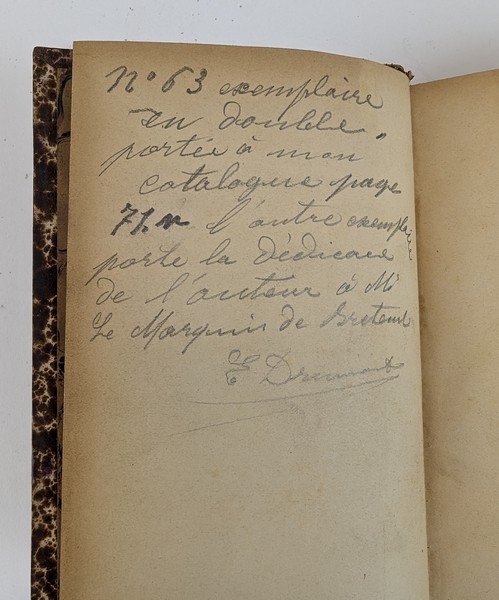 No 63 exemplaire
en double,
portée à mon
catalogue page
71. l'autre exemplaire
porte la dédicace
de l'auteur à Mr
Le Marquis de Breteuil
E Drumont